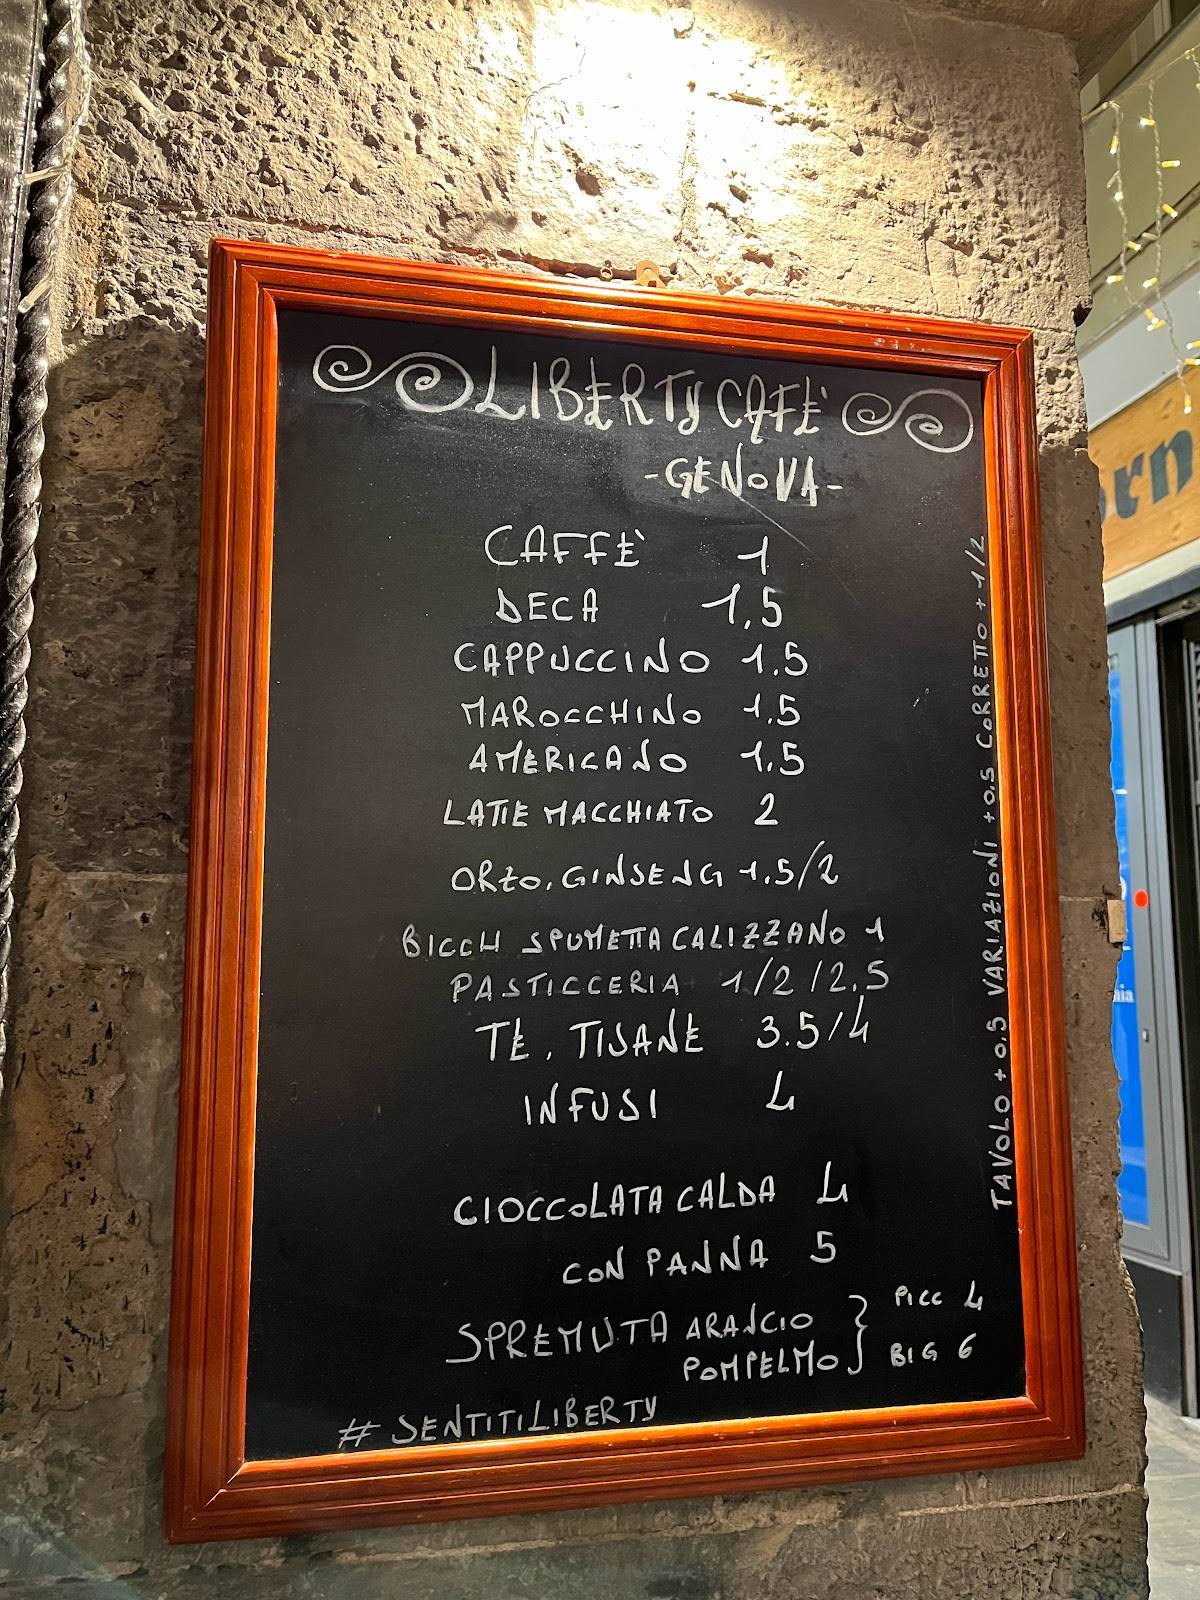 LIBERTY CAFÈ
-GENOVA-
CAFFÈ 1
DECA 1,5
CAPPUCCINO 1.5
MAROCCHINO 1.5
AMERICANO 1.5
LATTE MACCHIATO 2
ORZO, GINSENG 1.5/2
BICCH SPUMETTA CALIZZANO 1
PASTICCERIA 1/2/2.5
TE, TISANE 3.5/4
INFUSI 4
CIOCCOLATA CALDA 4
CON PANNA 5
SPREMUTA ARANCIO } PICC 4
POMPELMO } BIG 6
#SENTITILIBERTY
TAVOLO + 0,5 VARIAZIONI + 0.5 CORRETTO + 1/2